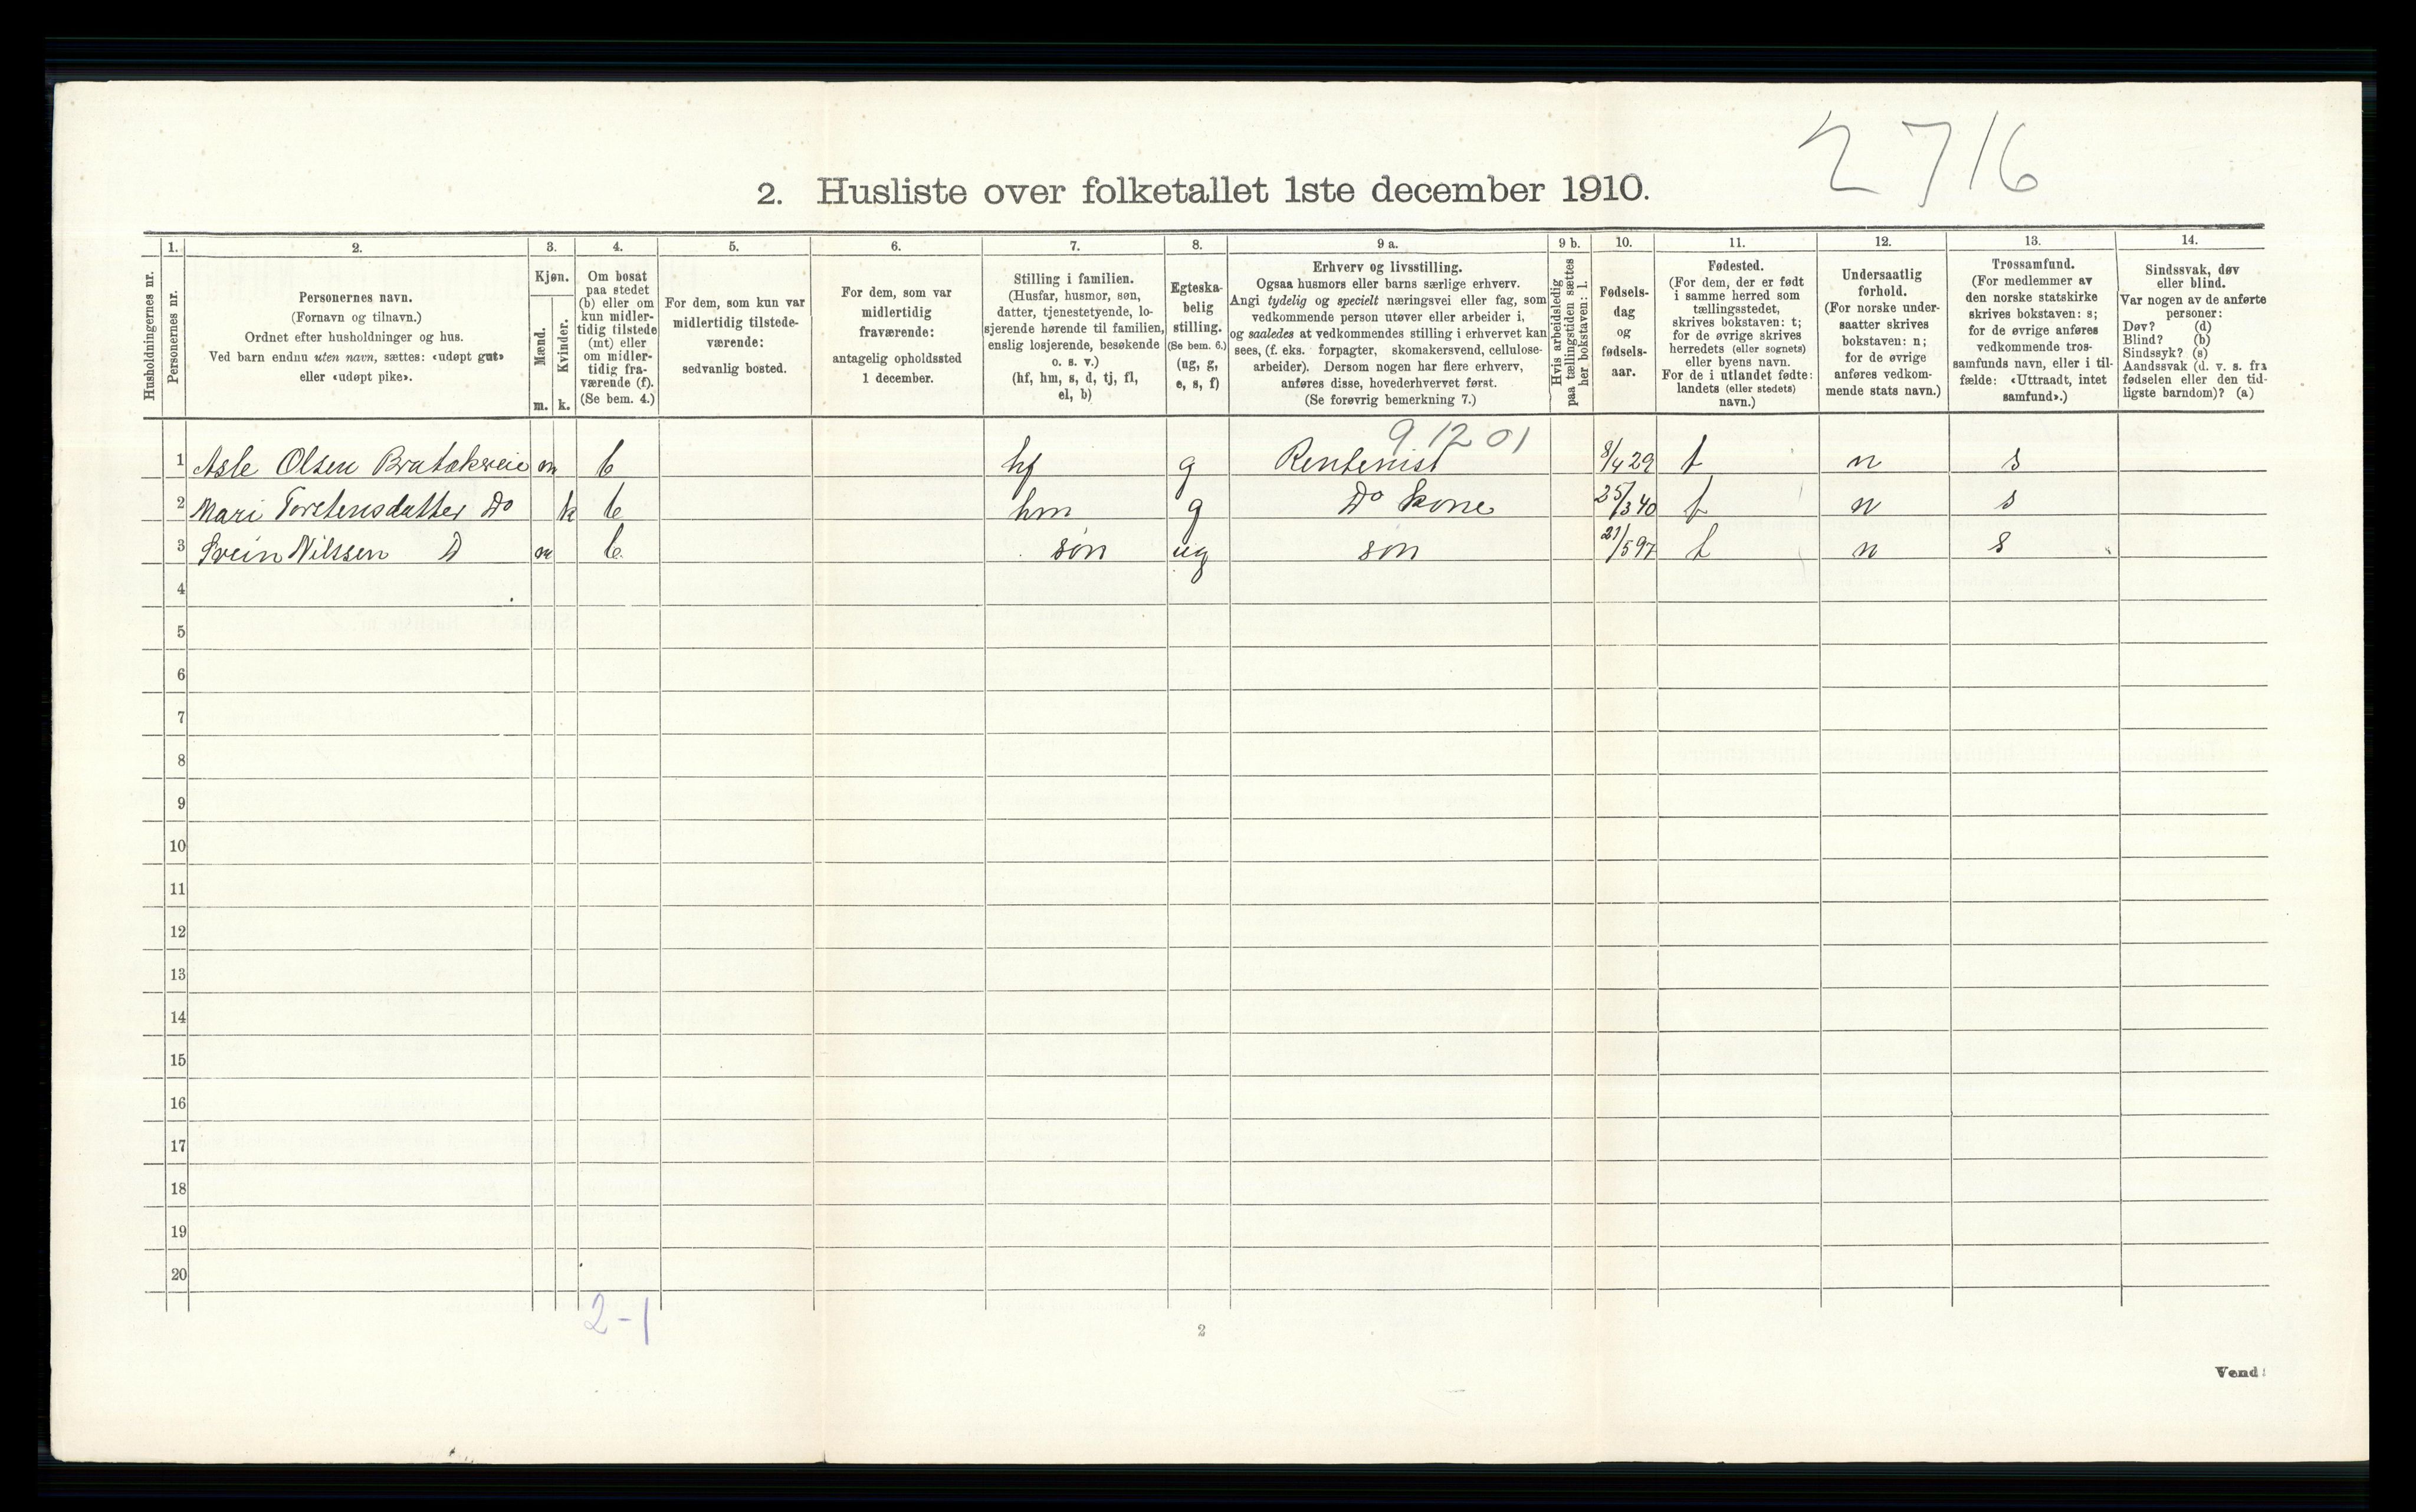 2716
2. Husliste over folketallet 1ste december 1910.
Husholdningernes nr.
1.
Personernes nr.
2.
Personernes navn.
(Fornavn og tilnavn.)
Ordnet efter husholdninger og hus.
Ved barn endnu uten navn, sættes: «udøpt gut»
eller «udøpt pike».
3.
Kjøn.
Mænd.
Kvinder.
m. k.
4.
Om bosat
paa stedet
(b) eller om
kun midler-
tidig tilstede
(mt) eller
om midler-
tidig fra-
værende (f).
(Se bem. 4.)
5.
For dem, som kun var
midlertidig tilstede-
værende:
sedvanlig bosted.
6.
For dem, som var
midlertidig
fraværende:
antagelig opholdssted
1 december.
7.
Stilling i familien.
(Husfar, husmor, søn,
datter, tjenestetyende, lo-
sjerende hørende til familien,
enslig losjerende, besøkende
o. s. v.)
(hf, hm, s, d, tj, fl,
el, b)
8.
Egteska-
belig
stilling.
(Se bem. 6.)
(ug, g,
e, s, f)
9 a.
Erhverv og livsstilling.
Ogsaa husmors eller barns særlige erhverv.
Angi tydelig og specielt næringsvei eller fag, som
vedkommende person utøver eller arbeider i,
og saaledes at vedkommendes stilling i erhvervet kan
sees, (f. eks. forpagter, skomakersvend, cellulose-
arbeider). Dersom nogen har flere erhverv,
anføres disse, hovederhvervet først.
(Se forøvrig bemerkning 7.)
9 b.
Hvis arbeidsledig
paa tællingstiden sættes
her bokstaven: l.
10.
Fødsels-
dag
og
fødsels-
aar.
11.
Fødested.
(For dem, der er født
i samme herred som
tællingsstedet,
skrives bokstaven: t;
for de øvrige skrives
herredets (eller sognets)
eller byens navn.
For de i utlandet fødte:
landets (eller stedets)
navn.)
12.
Undersaatlig
forhold.
(For norske under-
saatter skrives
bokstaven: n;
for de øvrige
anføres vedkom-
mende stats navn.)
13.
Trossamfund.
(For medlemmer av
den norske statskirke
skrives bokstaven: s;
for de øvrige anføres
vedkommende tros-
samfunds navn, eller i til-
fælde: «Uttraadt, intet
samfund».)
14.
Sindssvak, døv
eller blind.
Var nogen av de anførte
personer:
Døv? (d)
Blind? (b)
Sindssyk? (s)
Aandssvak (d. v. s. fra
fødselen eller den tid-
ligste barndom)? (a)
9 12 01
1 Asle Olsen m b hf g Rentenist 8/4 29 t n s
2 Mari Torstensdatter Do k b hm g Do kone 25/3 40 t n s
3 Svein Nilssen D m b søn ug søn 21/5 97 t n s
4
5
6
7
8
9
10
11
12
13
14
15
16
17
18
19
20
2-1
2
Vend!